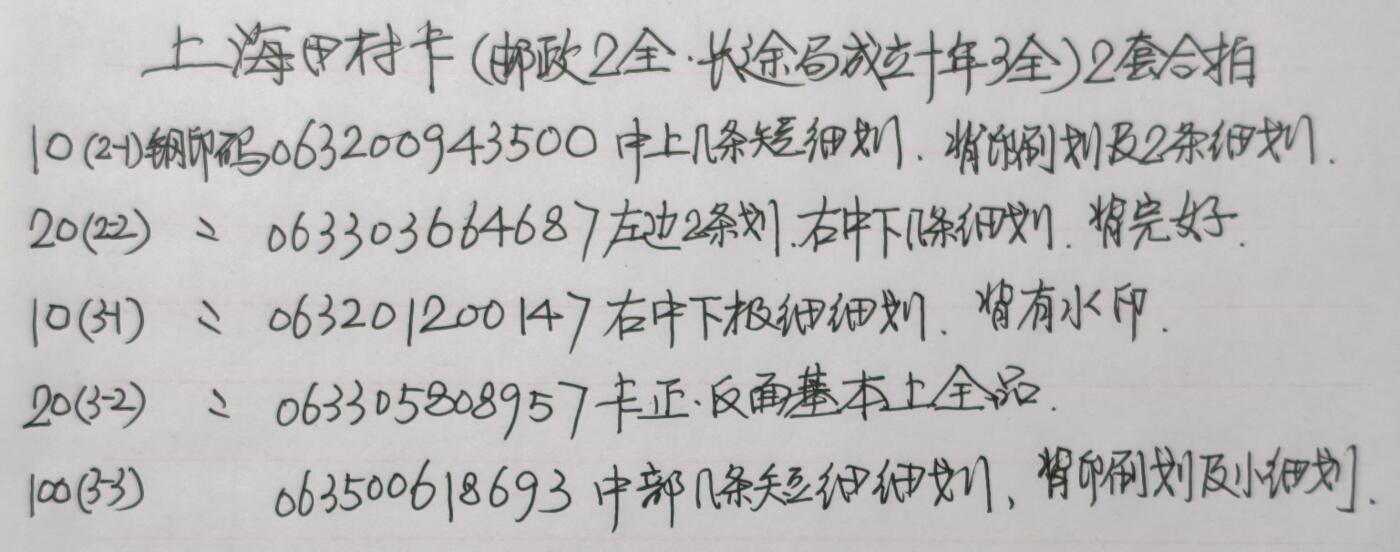 上海田村卡(邮政2全·长途局成立十年3全)2套合拍
10(2-1)钢印码063200943500中上几条短细划.背印刷划及2条细划.
20(2-2) 〃 063303664687左边2条划.右中下几条细划.背完好.
10(3-1) 〃 063201200147右中下极细细划.背有水印.
20(3-2) 〃 063305808957卡正.反面基本上全品.
100(3-3) 063500618693中部几条短细细划,背印刷划及小细划.